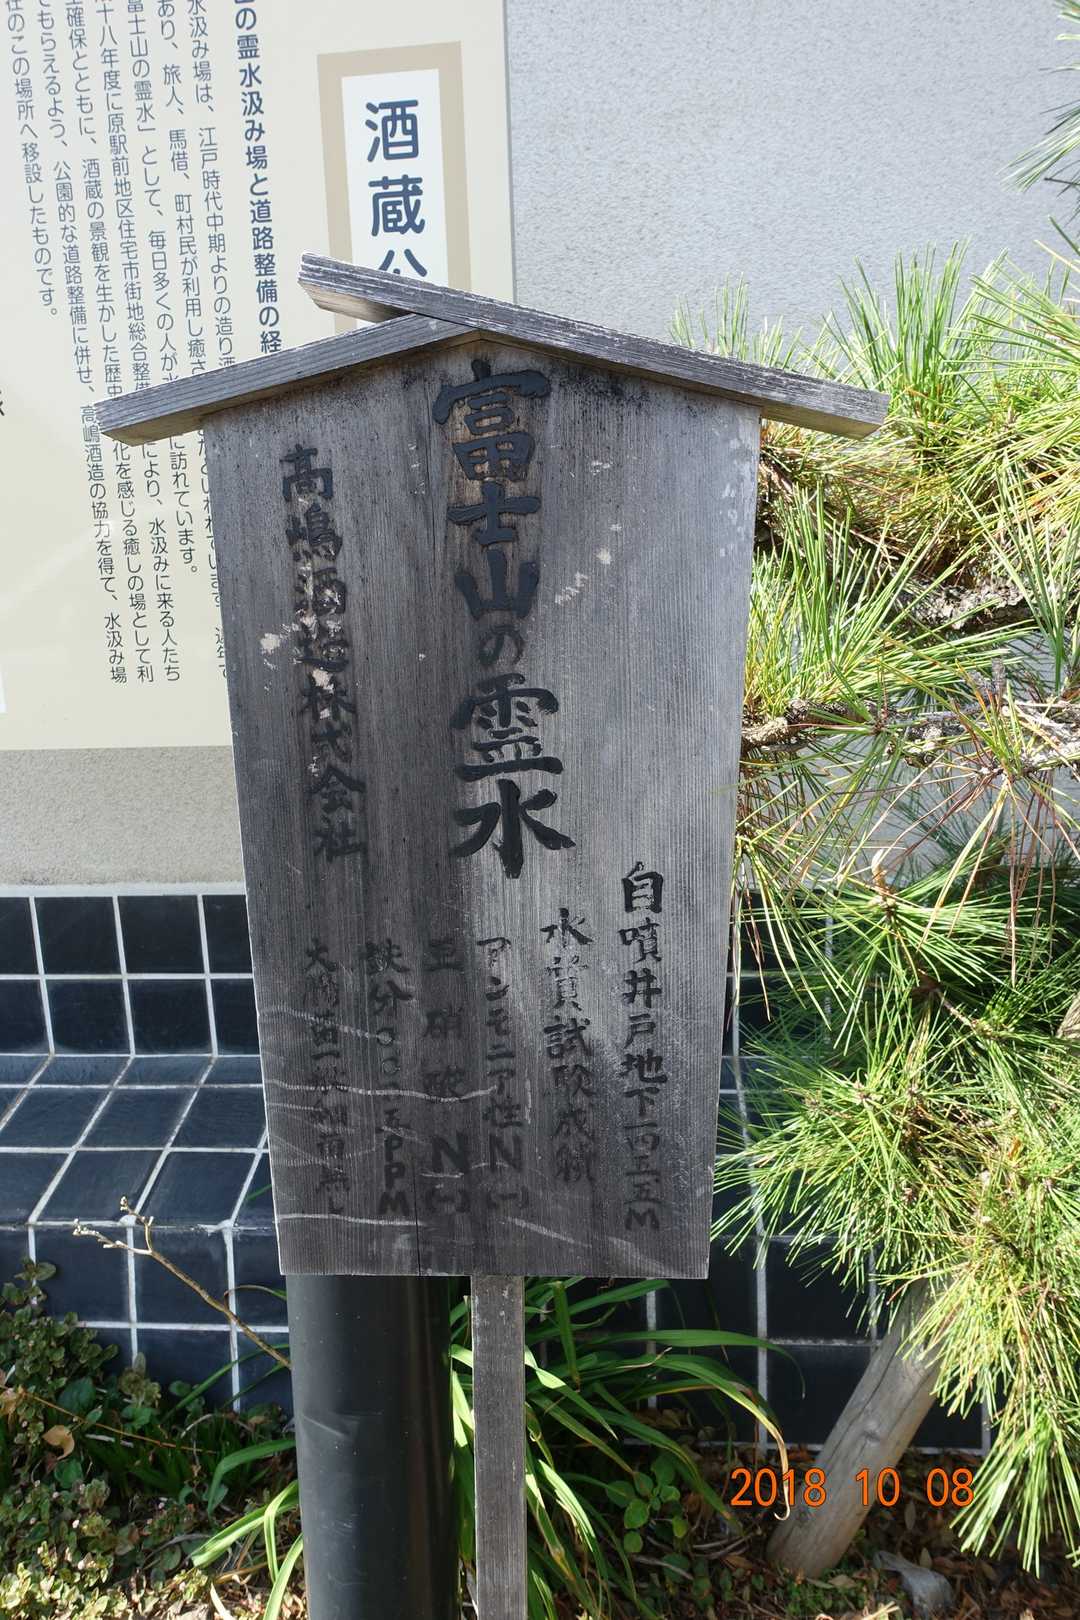 酒蔵公
の霊水汲み場と道路整備の経
水汲み場は、江戸時代中期よりの造り酒
あり、旅人、馬借、町村民が利用し癒さ
富士山の霊水」として、毎日多くの人が水
に訪れています。
十八年度に原駅前地区住宅市街地総合整備
により、水汲みに来る人たち
確保とともに、酒蔵の景観を生かした歴史
化を感じる癒しの場として利
てもらえるよう、公園的な道路整備に併せ、高嶋酒造の協力を得て、水汲み場
在のこの場所へ移設したものです。
自噴井戸地下一四五五M
水質試験成績
富士山の霊水
アンモニア性N(一)
亜硝酸N(一)
鉄分〇〇一五PPM
大腸菌一般細菌無し
高嶋酒造株式会社
2018 10 08